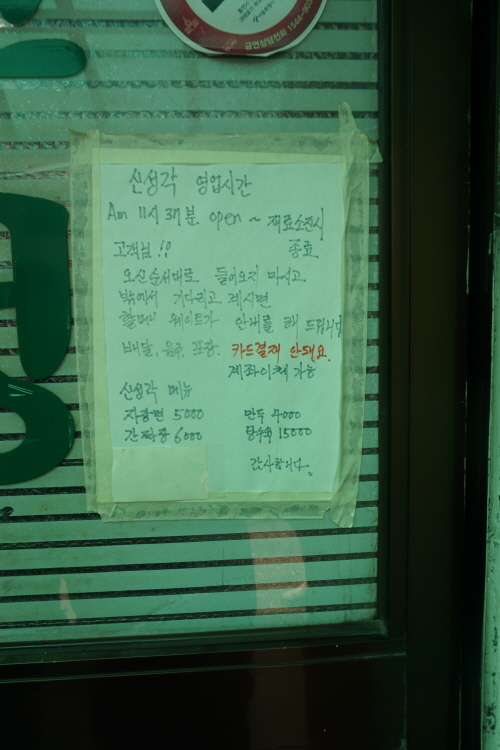 금연상담전화 1544-9030
신성각 영업시간
Am 11시 37분 open ~ 재료소진시
종료
고객님!!
오신순서대로 들어오지 마시고
밖에서 기다리고 계시면
할머니 웨이트가 안내를 해 드립니다
배달, 음주, 포장, 카드결재 안돼요.
계좌이체 가능
신성각 메뉴
자장면 5000 만두 4000
간짜장 6000 탕수육 15000
감사합니다.